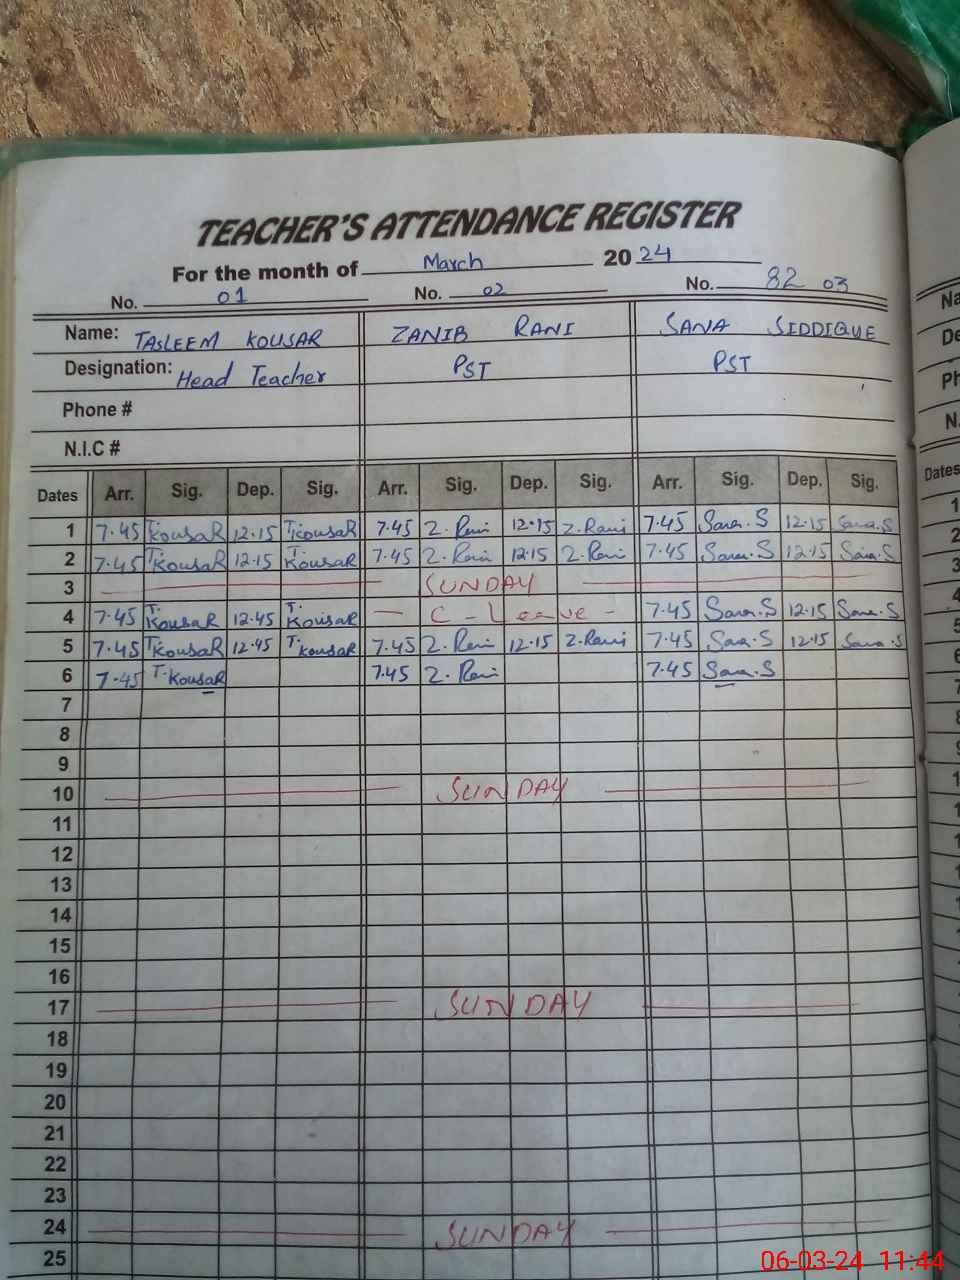 TEACHER'S ATTENDANCE REGISTER
For the month of March 2024
No. 01 No. 02 No. 82 03
Name: TASLEEM KOUSAR ZANIB RANI SANA SIDDIQUE
Designation: Head Teacher PST PST
Phone #
N.I.C #
Dates Arr. Sig. Dep. Sig. Arr. Sig. Dep. Sig. Arr. Sig. Dep. Sig.
1 7.45 T.KousaR 12.15 T.KousaR 7.45 Z. Rani 12.15 Z. Rani 7.45 Sana.S 12.15 Sana.S
2 7.45 T.KousaR 12.15 T.KousaR 7.45 Z. Rani 12.15 Z. Rani 7.45 Sana.S 12.15 Sana.S
3 SUNDAY
4 7.45 T.KousaR 12.45 T.KousaR — C - Leave - 7.45 Sana.S 12.15 Sana.S
5 7.45 T.KousaR 12.45 T.KousaR 7.45 Z. Rani 12.15 Z. Rani 7.45 Sana.S 12.15 Sana.S
6 7.45 T.KousaR 7.45 Z. Rani 7.45 Sana.S
7
8
9
10 SUNDAY
11
12
13
14
15
16
17 SUNDAY
18
19
20
21
22
23
24 SUNDAY
25
Dates
06-03-24 11:44